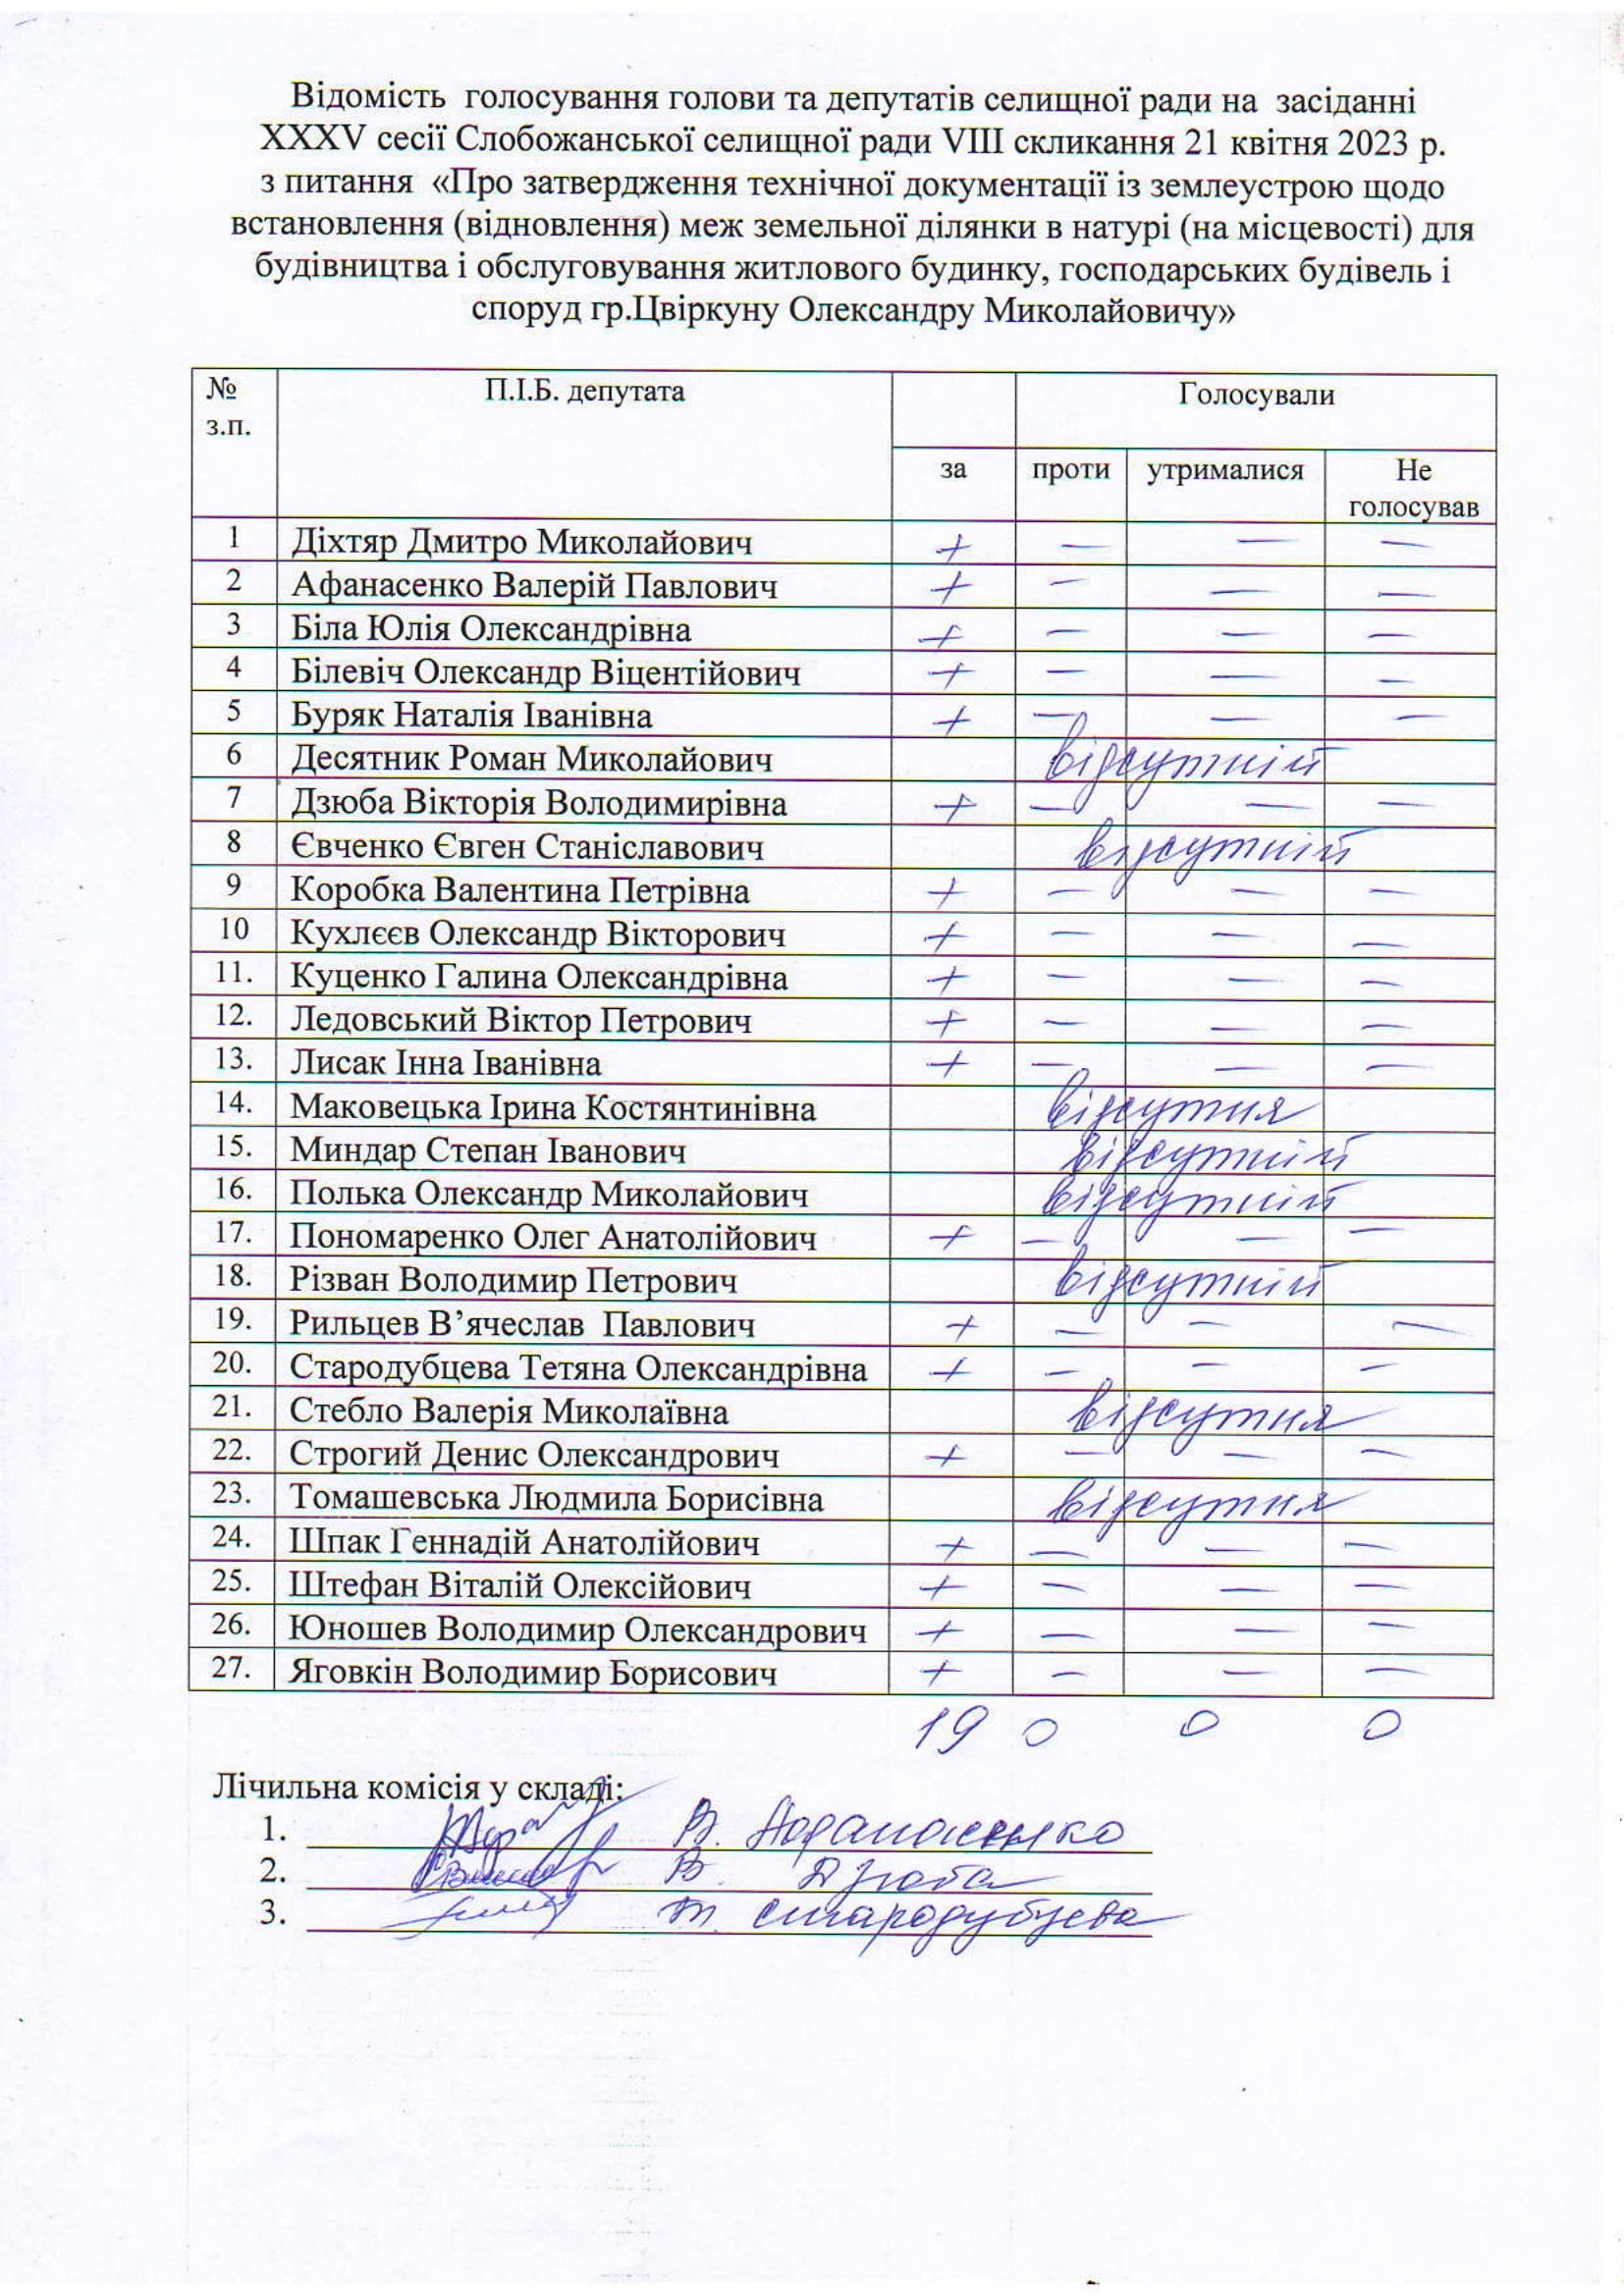 Відомість голосування голови та депутатів селищної ради на засіданні
XXXV сесії Слобожанської селищної ради VIII скликання 21 квітня 2023 р.
з питання «Про затвердження технічної документації із землеустрою щодо
встановлення (відновлення) меж земельної ділянки в натурі (на місцевості) для
будівництва і обслуговування житлового будинку, господарських будівель і
споруд гр.Цвіркуну Олександру Миколайовичу»
№ з.п. П.І.Б. депутата Голосували
за проти утрималися Не голосував
1 Діхтяр Дмитро Миколайович + — — —
2 Афанасенко Валерій Павлович + — — —
3 Біла Юлія Олександрівна + — — —
4 Білевіч Олександр Віцентійович + — — —
5 Буряк Наталія Іванівна + — — —
6 Десятник Роман Миколайович відсутній
7 Дзюба Вікторія Володимирівна + — — —
8 Євченко Євген Станіславович відсутній
9 Коробка Валентина Петрівна + — — —
10 Кухлєєв Олександр Вікторович + — — —
11. Куценко Галина Олександрівна + — — —
12. Ледовський Віктор Петрович + — — —
13. Лисак Інна Іванівна + — — —
14. Маковецька Ірина Костянтинівна відсутня
15. Миндар Степан Іванович відсутній
16. Полька Олександр Миколайович відсутній
17. Пономаренко Олег Анатолійович + — — —
18. Різван Володимир Петрович відсутній
19. Рильцев В’ячеслав Павлович + — — —
20. Стародубцева Тетяна Олександрівна + — — —
21. Стебло Валерія Миколаївна відсутня
22. Строгий Денис Олександрович + — — —
23. Томашевська Людмила Борисівна відсутня
24. Шпак Геннадій Анатолійович + — — —
25. Штефан Віталій Олексійович + — — —
26. Юношев Володимир Олександрович + — — —
27. Яговкін Володимир Борисович + — — —
19 0 0 0
Лічильна комісія у складі:
1. В. Афанасенко
2. В. Дзюба
3. Т. Стародубцева